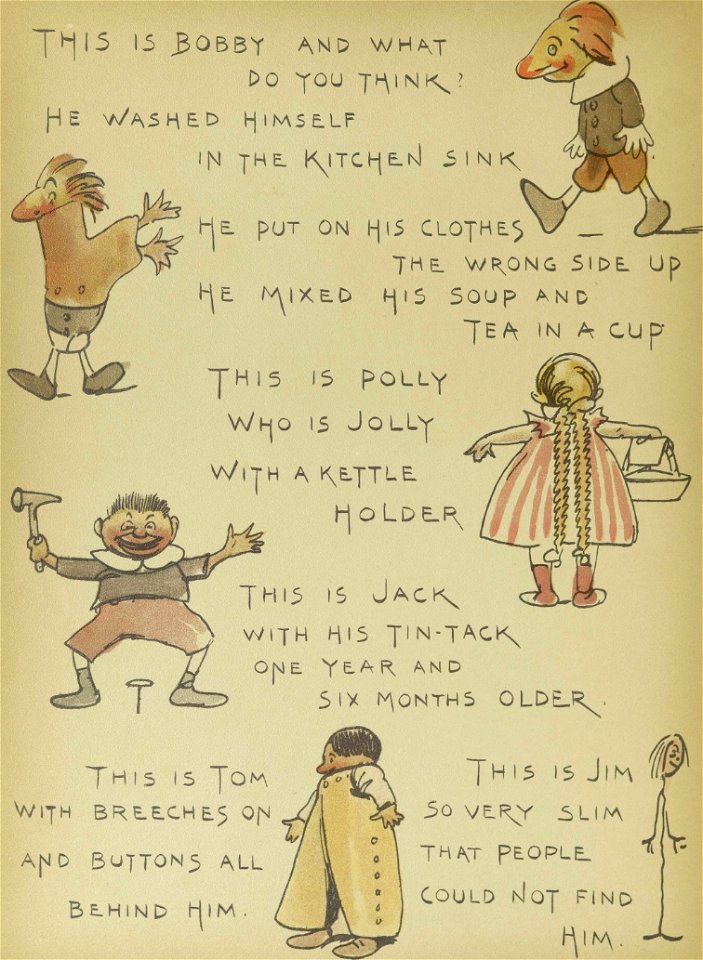 THIS IS BOBBY AND WHAT
DO YOU THINK?
HE WASHED HIMSELF
IN THE KITCHEN SINK
HE PUT ON HIS CLOTHES
THE WRONG SIDE UP
HE MIXED HIS SOUP AND
TEA IN A CUP
THIS IS POLLY
WHO IS JOLLY
WITH A KETTLE
HOLDER
THIS IS JACK
WITH HIS TIN-TACK
ONE YEAR AND
SIX MONTHS OLDER.
THIS IS TOM
WITH BREECHES ON
AND BUTTONS ALL
BEHIND HIM.
THIS IS JIM
SO VERY SLIM
THAT PEOPLE
COULD NOT FIND
HIM.